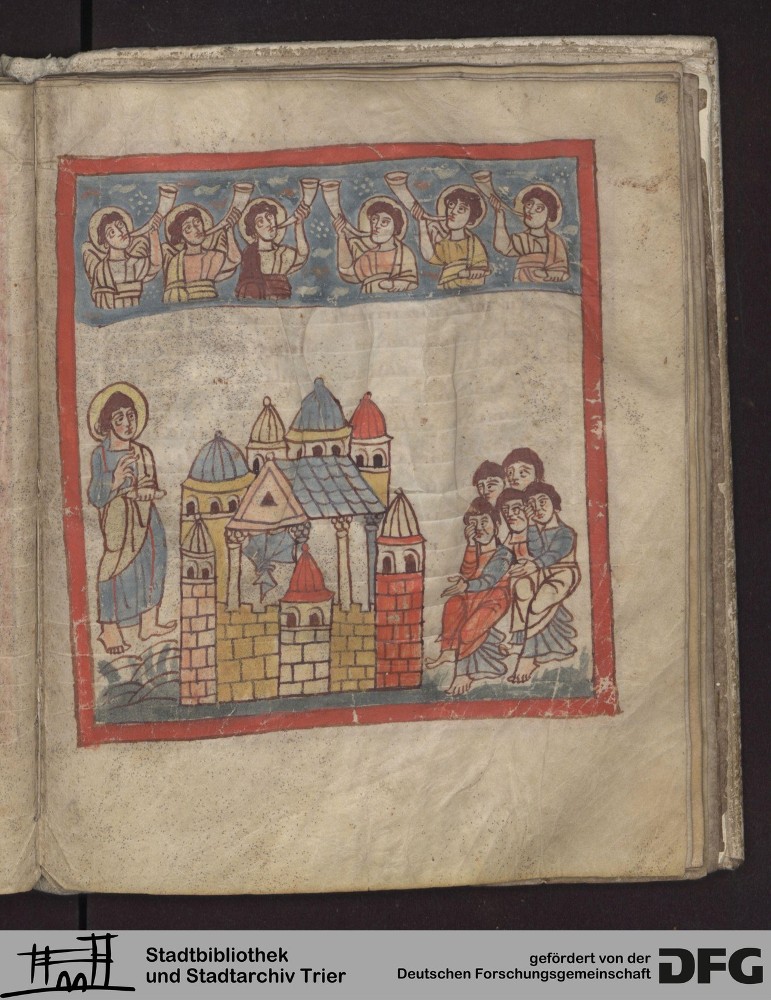 60
Stadtbibliothek
und Stadtarchiv Trier
gefördert von der
Deutschen Forschungsgemeinschaft
DFG